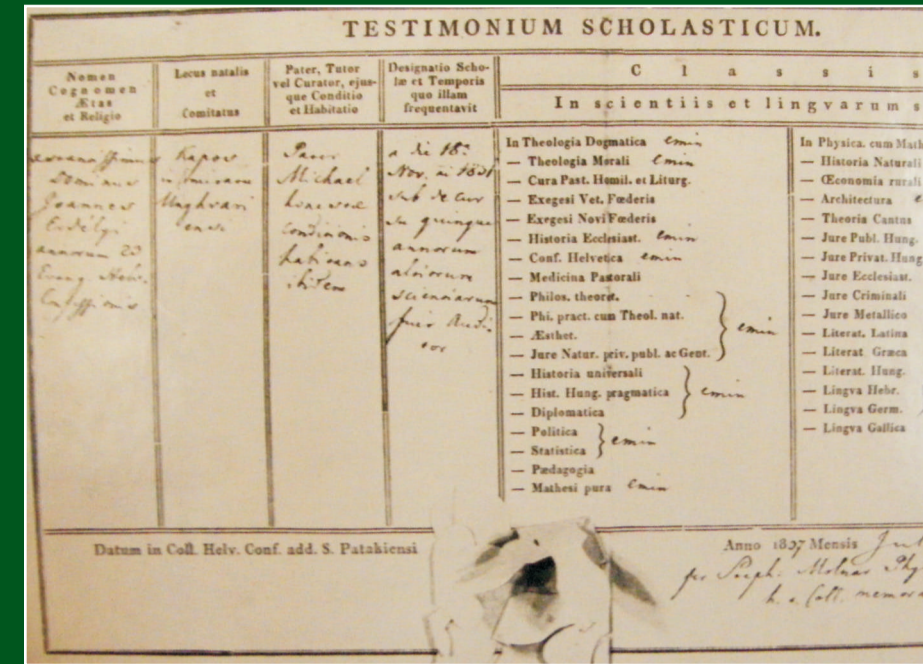 TESTIMONIUM SCHOLASTICUM.
Nomen
Cognomen
Ætas
et Religio
Locus natalis
et
Comitatus
Pater, Tutor
vel Curator, ejus-
que Conditio
et Habitatio
Designatio Scho-
læ et Temporis
quo illam
frequentavit
C l a s s i s
In scientiis et lingvarum s
Dominus
Joannes
Erdélyi
annorum 20
Evang. Helv.
Confessionis
Kapos
Unghvari
ensi
Pater
Michael
honestae
conditionis
habitans
ibidem
a die 18a
Nov. a 1831
sub decur
su quinque
annorum
altiorum
scientiarum
fuit Audi
tor
In Theologia Dogmatica emin
— Theologia Morali emin
— Cura Past. Homil. et Liturg.
— Exegesi Vet. Fœderis
— Exegesi Novi Fœderis
— Historia Ecclesiast. emin
— Conf. Helvetica emin
— Medicina Pastorali
— Philos. theoret.
— Phi. pract. cum Theol. nat.
— Æsthet.
— Jure Natur. priv. publ. ac Gent. emin
— Historia universali
— Hist. Hung. pragmatica emin
— Diplomatica
— Politica
— Statistica emin
— Pædagogia
— Mathesi pura emin
In Physica. cum Math
— Historia Naturali
— Œconomia rurali
— Architectura e
— Theoria Cantus
— Jure Publ. Hung.
— Jure Privat. Hung
— Jure Ecclesiast.
— Jure Criminali
— Jure Metallico
— Literat. Latina
— Literat Græca
— Literat. Hung.
— Lingva Hebr.
— Lingva Germ.
— Lingva Gallica
Datum in Coll. Helv. Conf. add. S. Patakiensi
Anno 1837 Mensis Jul
per Steph. Molnar Phy
h. a. Coll.